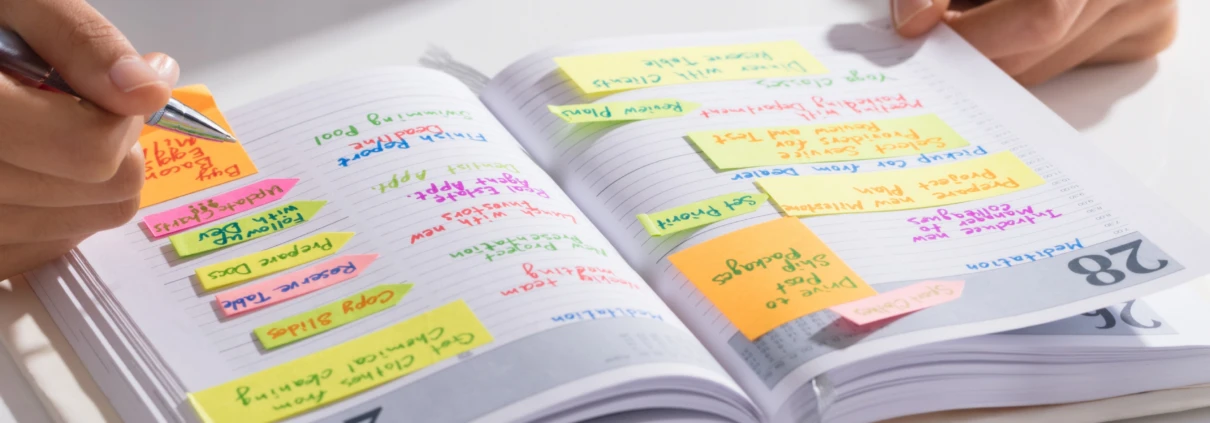 28
26
Meditation
Introduce new
Manager to
colleagues
Prepare new Milestone
Project Plan
Pickup Car from Dealer
Select Service
Providers for
Review and Test
Meeting with
Marketing Department
Yoga Classes
Dinner with Clients
Reserve Table
Drive to
Post
Ship
Packages
Set Priorit
Review Plans
Meditation
Weekly team
meeting
New Project
Presentation
Lunch with new
Investors
Real Estate
Agent Appt.
Dentist Appt.
Finish Report
Deadline
Swimming Pool
Get Clothes from
Chemical cleaning
Copy Slides
Reserve Table
Prepare Docs
Follow up
with Dev
Update Charts
!!!
Buy
Bacon
Eggs